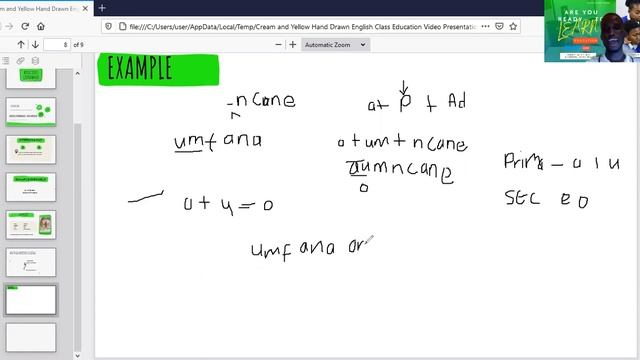 m and Yellow Hand Drawn Engl
file:///C:/Users/user/AppData/Local/Temp/Cream and Yellow Hand Drawn English Class Education Video Presentati
8 of 9
Automatic Zoom
ARE YOU
READY TO
LEARN
EXAMPLE
-ncane
a+ P + Ad
umfana
a+um+ncane
aumncane
o
Prim - a i u
SEC e o
a + u = o
umfana o